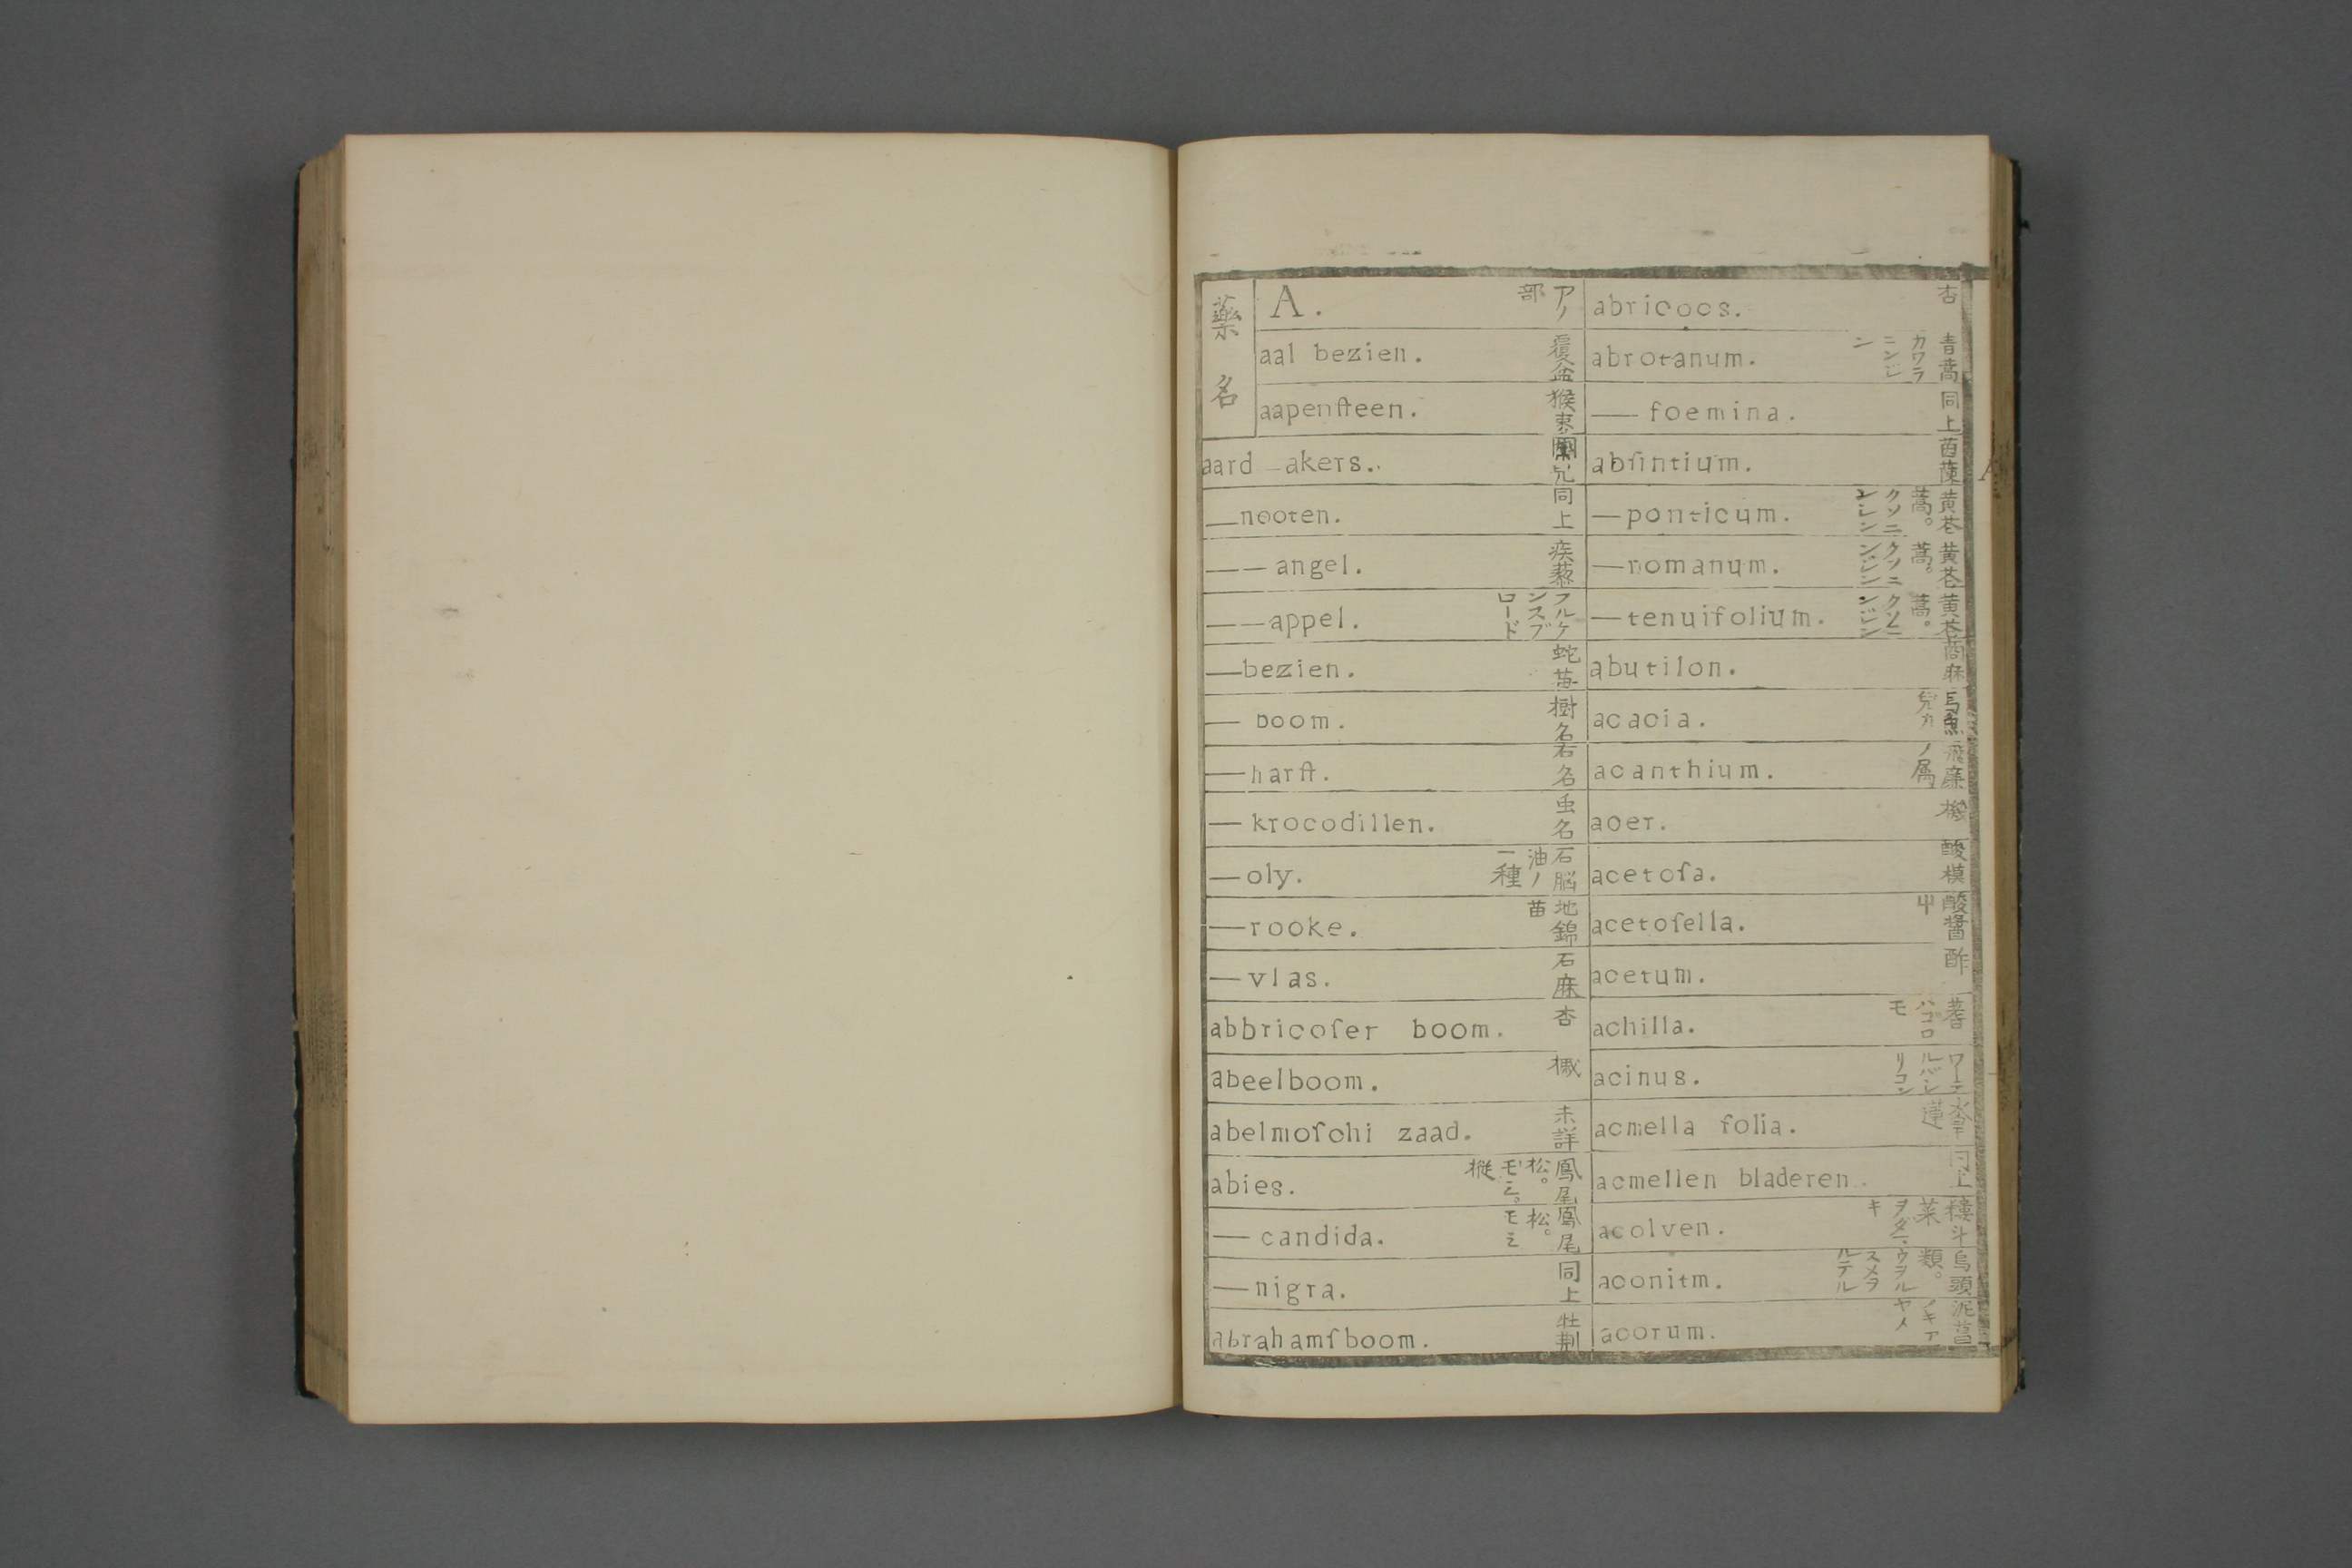 藥名
A. アノ部
aal bezien. 覆盆
aapenſteen. 猴棗
aard —akers.
—nooten. 同上
—— angel. 疾藜
——appel. フルケンスブロード
—bezien. 蛇苺
— boom. 樹名
—harſt. 石名
— krocodillen. 虫名
—oly. 石脳油ノ一種
—rooke. 地錦苗
—vlas. 石麻
abbricoſer boom. 杏
abeelboom. 槭
abelmoſchi zaad. 未詳
abies. 鳳尾松。モミ。樅
— candida. 鳳尾松。モミ
—nigra. 同上
abrahamſboom. 牡荆
abricocs. 杏
abrotanum. 青蒿 カワラニンジン
— foemina. 同上
abſintium. 茵蔯
—ponticum. 黄花蒿。クソニンジン
—romanum. 黄花蒿。クソニンジン
—tenuifolium. 黄花蒿。クソニンジン
abutilon. 莔麻
acacia.
acanthium. 飛廉ノ属
acer. 槭
acetoſa. 酸模
acetoſella. 酸醬
acetum. 酢
achilla. 蓍 ハゴロモ
acinus.
acmella folia.
acmellen bladeren. 同上
acolven. 樓斗菜 ヲダマキ
aconitm. 烏頭類。ウヲルスメヲルテル
acorum. 泥菖 ノキアヤメ